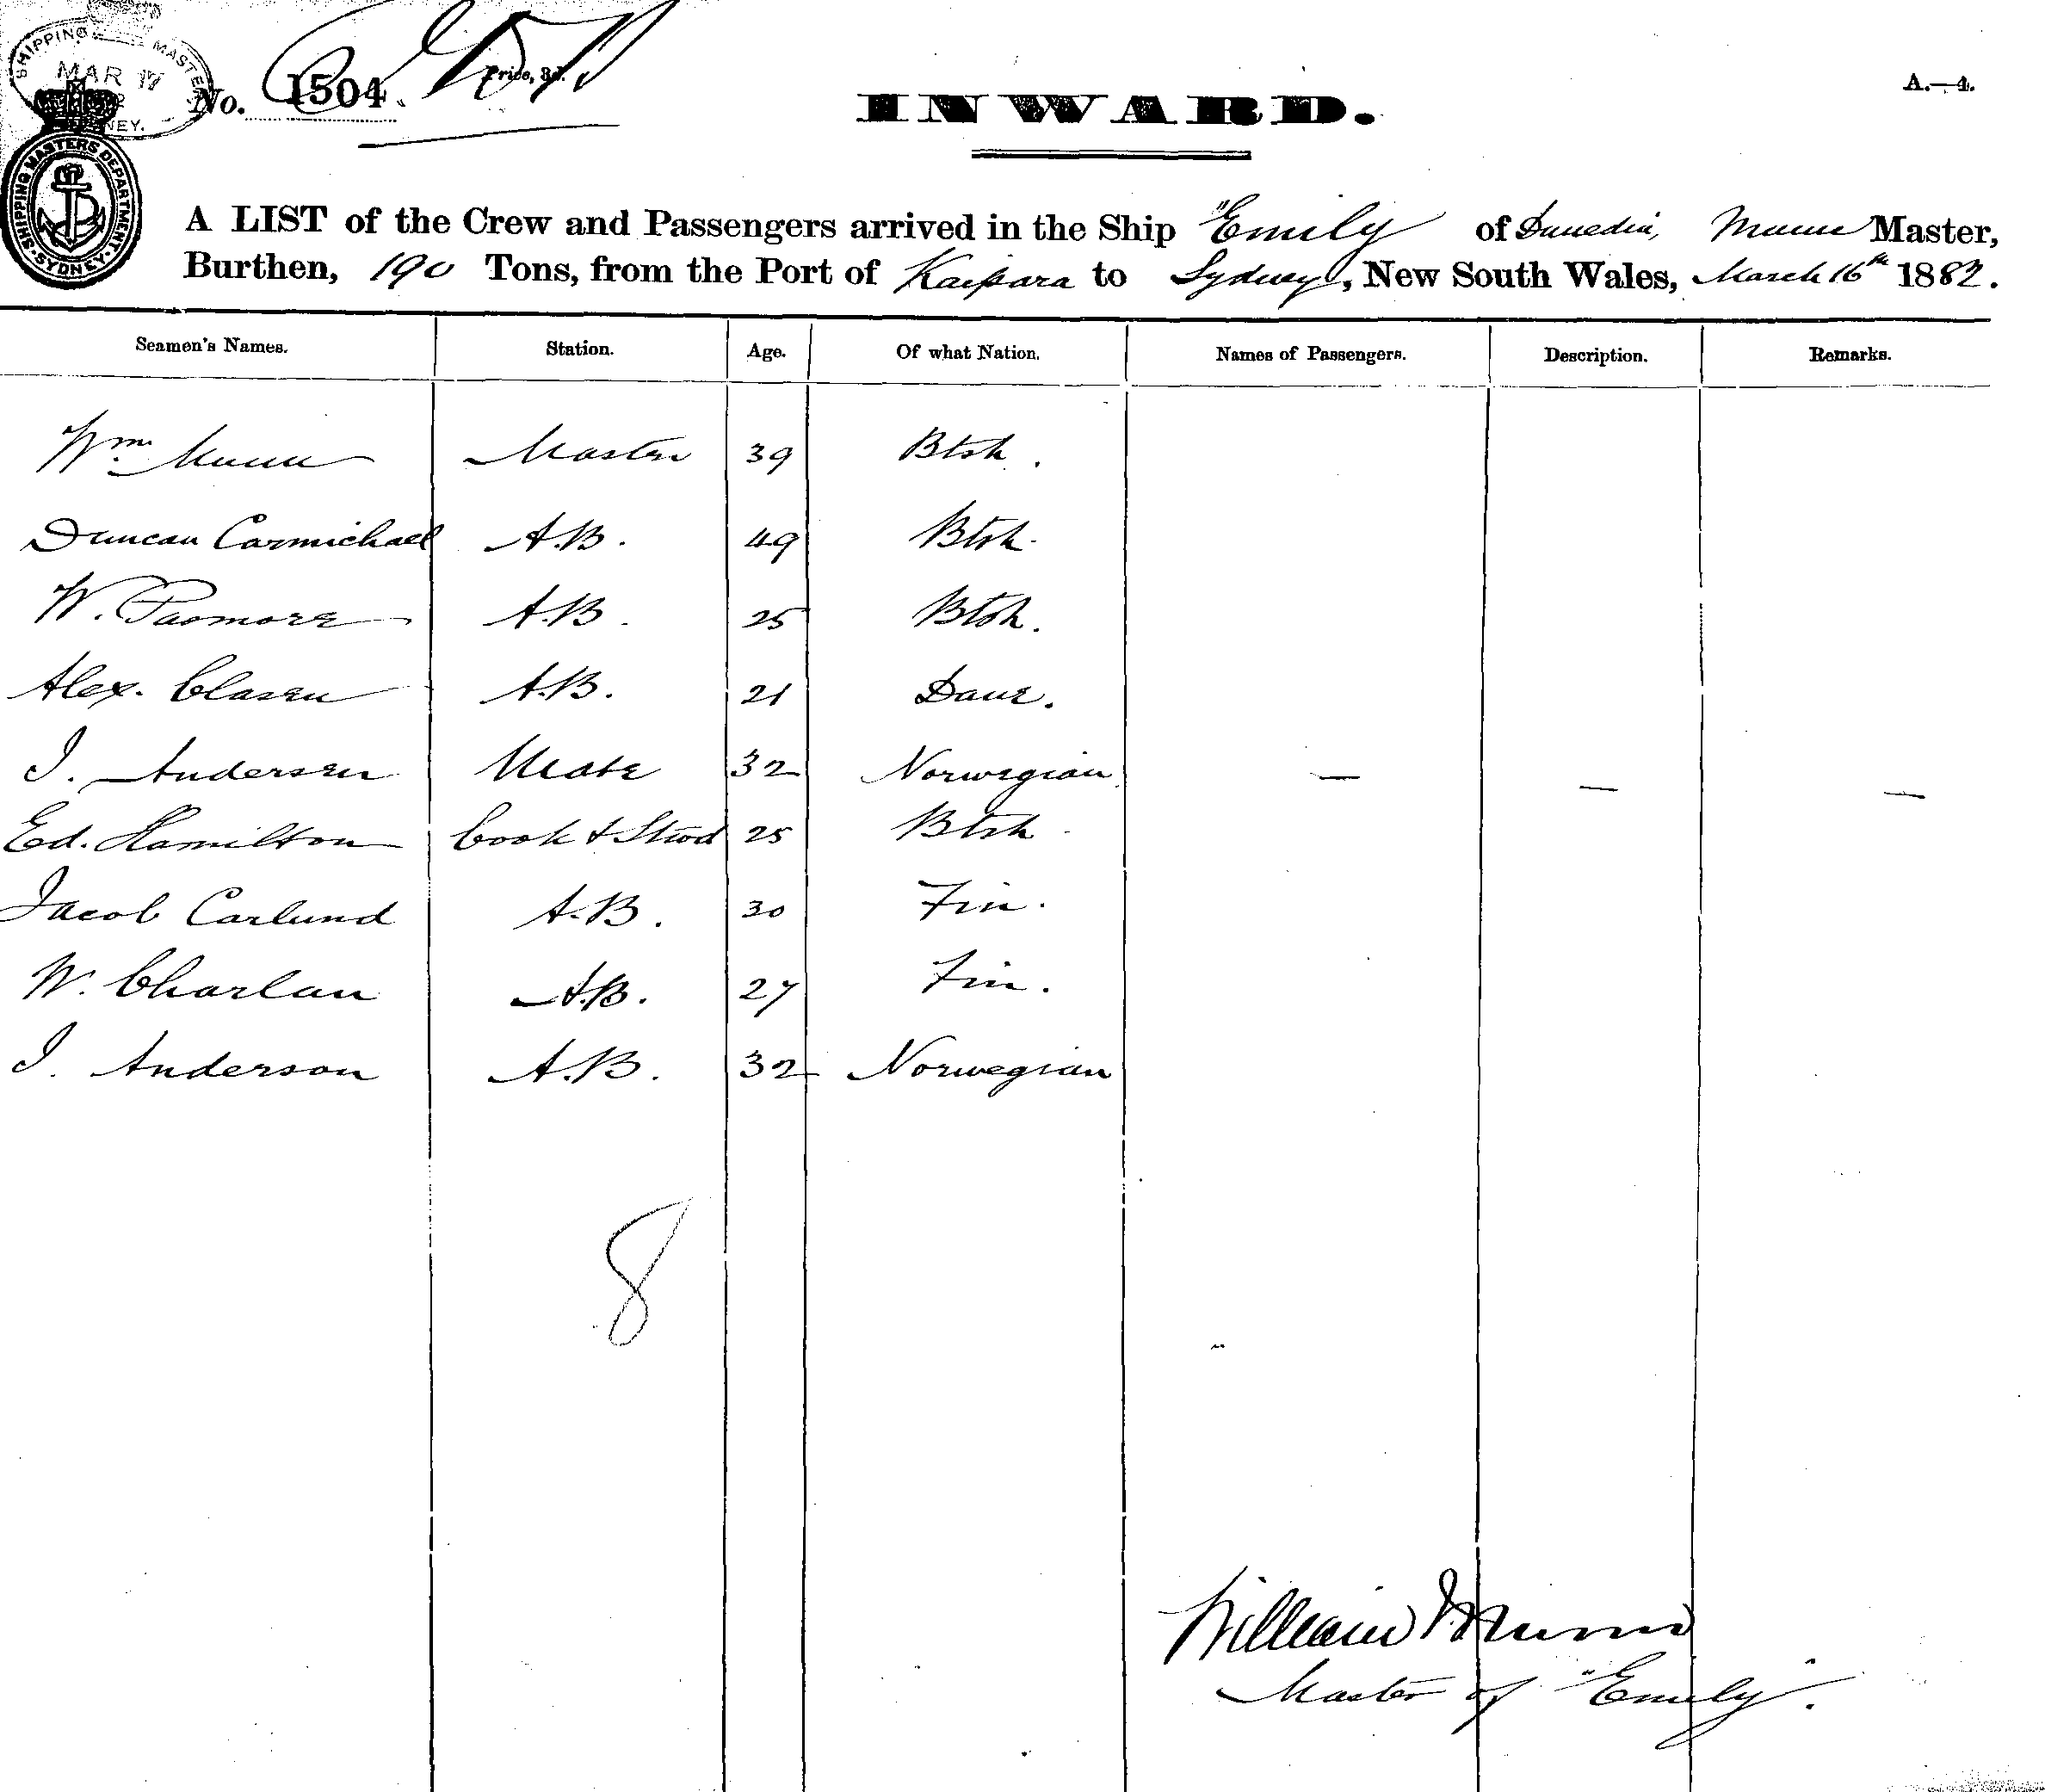 SHIPPING MASTER
MAR 17
No. 1504 Price, 3d.
A.—4.
INWARD.
SHIPPING MASTERS DEPARTMENT SYDNEY
A LIST of the Crew and Passengers arrived in the Ship "Emily of Dunedin, Munn Master,
Burthen, 190 Tons, from the Port of Kaipara to Sydney, New South Wales, March 16th 1882.
Seamen's Names. Station. Age. Of what Nation. Names of Passengers. Description. Remarks.
Wm Munn Master 39 Btsh.
Duncan Carmichael A.B. 49 Btsh.
W. Pasmore A.B. 25 Btsh.
Alex. Clasen A.B. 21 Dane.
I. Andersen Mate 32 Norwegian — — —
Ed. Hamilton Cook & Stwd 25 Btsh
Jacob Carlund A.B. 30 Fin.
W. Charlan A.B. 27 Fin.
I. Anderson A.B. 32 Norwegian
8
William Munn
Master of "Emily".